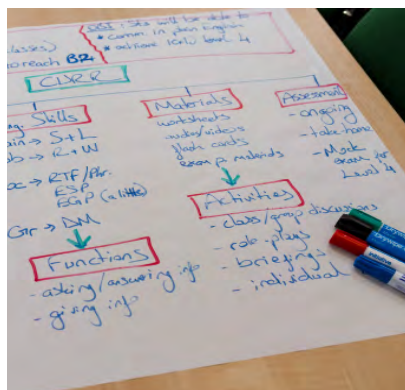 lasses)
to reach B2
Sts will be able to
* comm. in plain English
* achieve ICAO level 4
Skills
ain → S+L
ob → R+W
oc → RTF/Phr.
ESP
EGP (a little)
Gr → DM
Functions
- asking/answering info
- giving info
Materials
worksheets
audios/videos
flash cards
exam p materials
Activities
- class/group discussions
- role-plays
- briefings
- individual
Assessment
- ongoing
- take home
- Mock
exam for
Level 4
Drywipe